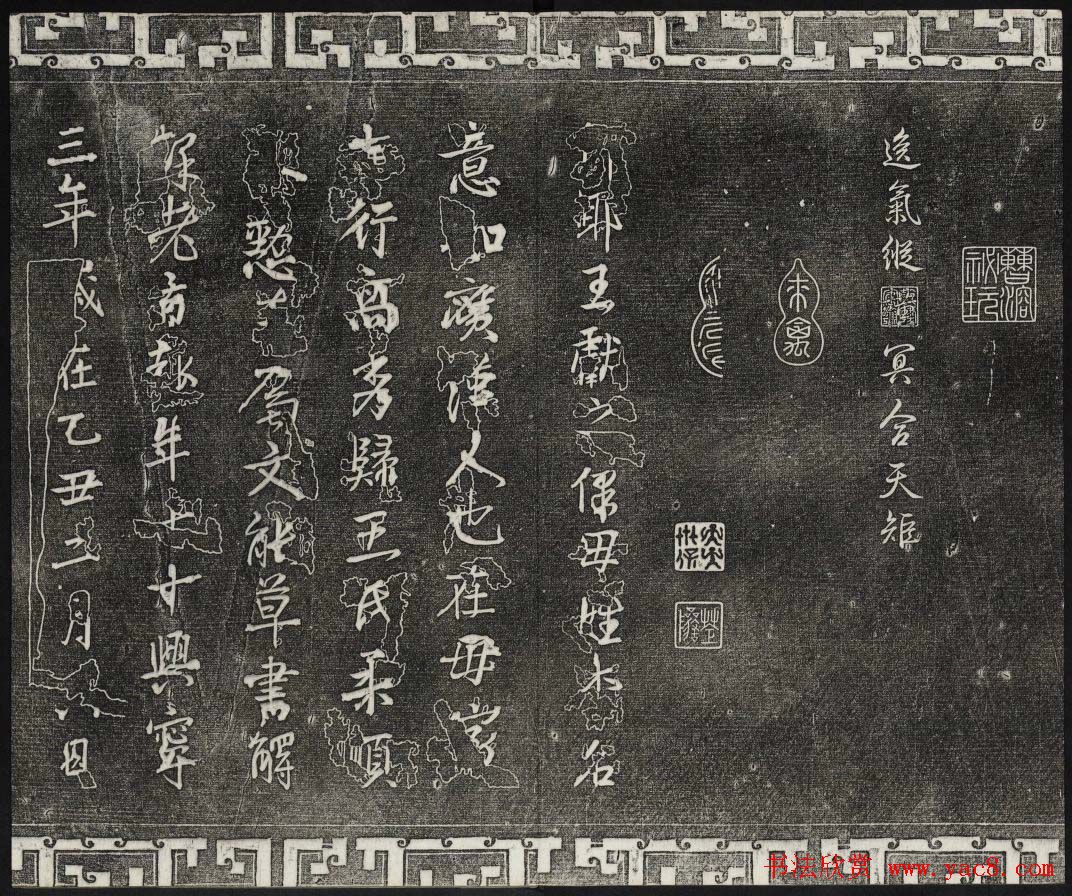 曹溶秘玩
逸氣縱
冥合天矩
琅耶王獻之保母姓李名
意如廣漢人也在母家
志行高秀歸王氏柔順
恭懃善屬文能草書解
釋老旨趣年七十興寧
三年歲在乙丑二月六日
书法欣赏 www.yac8.com